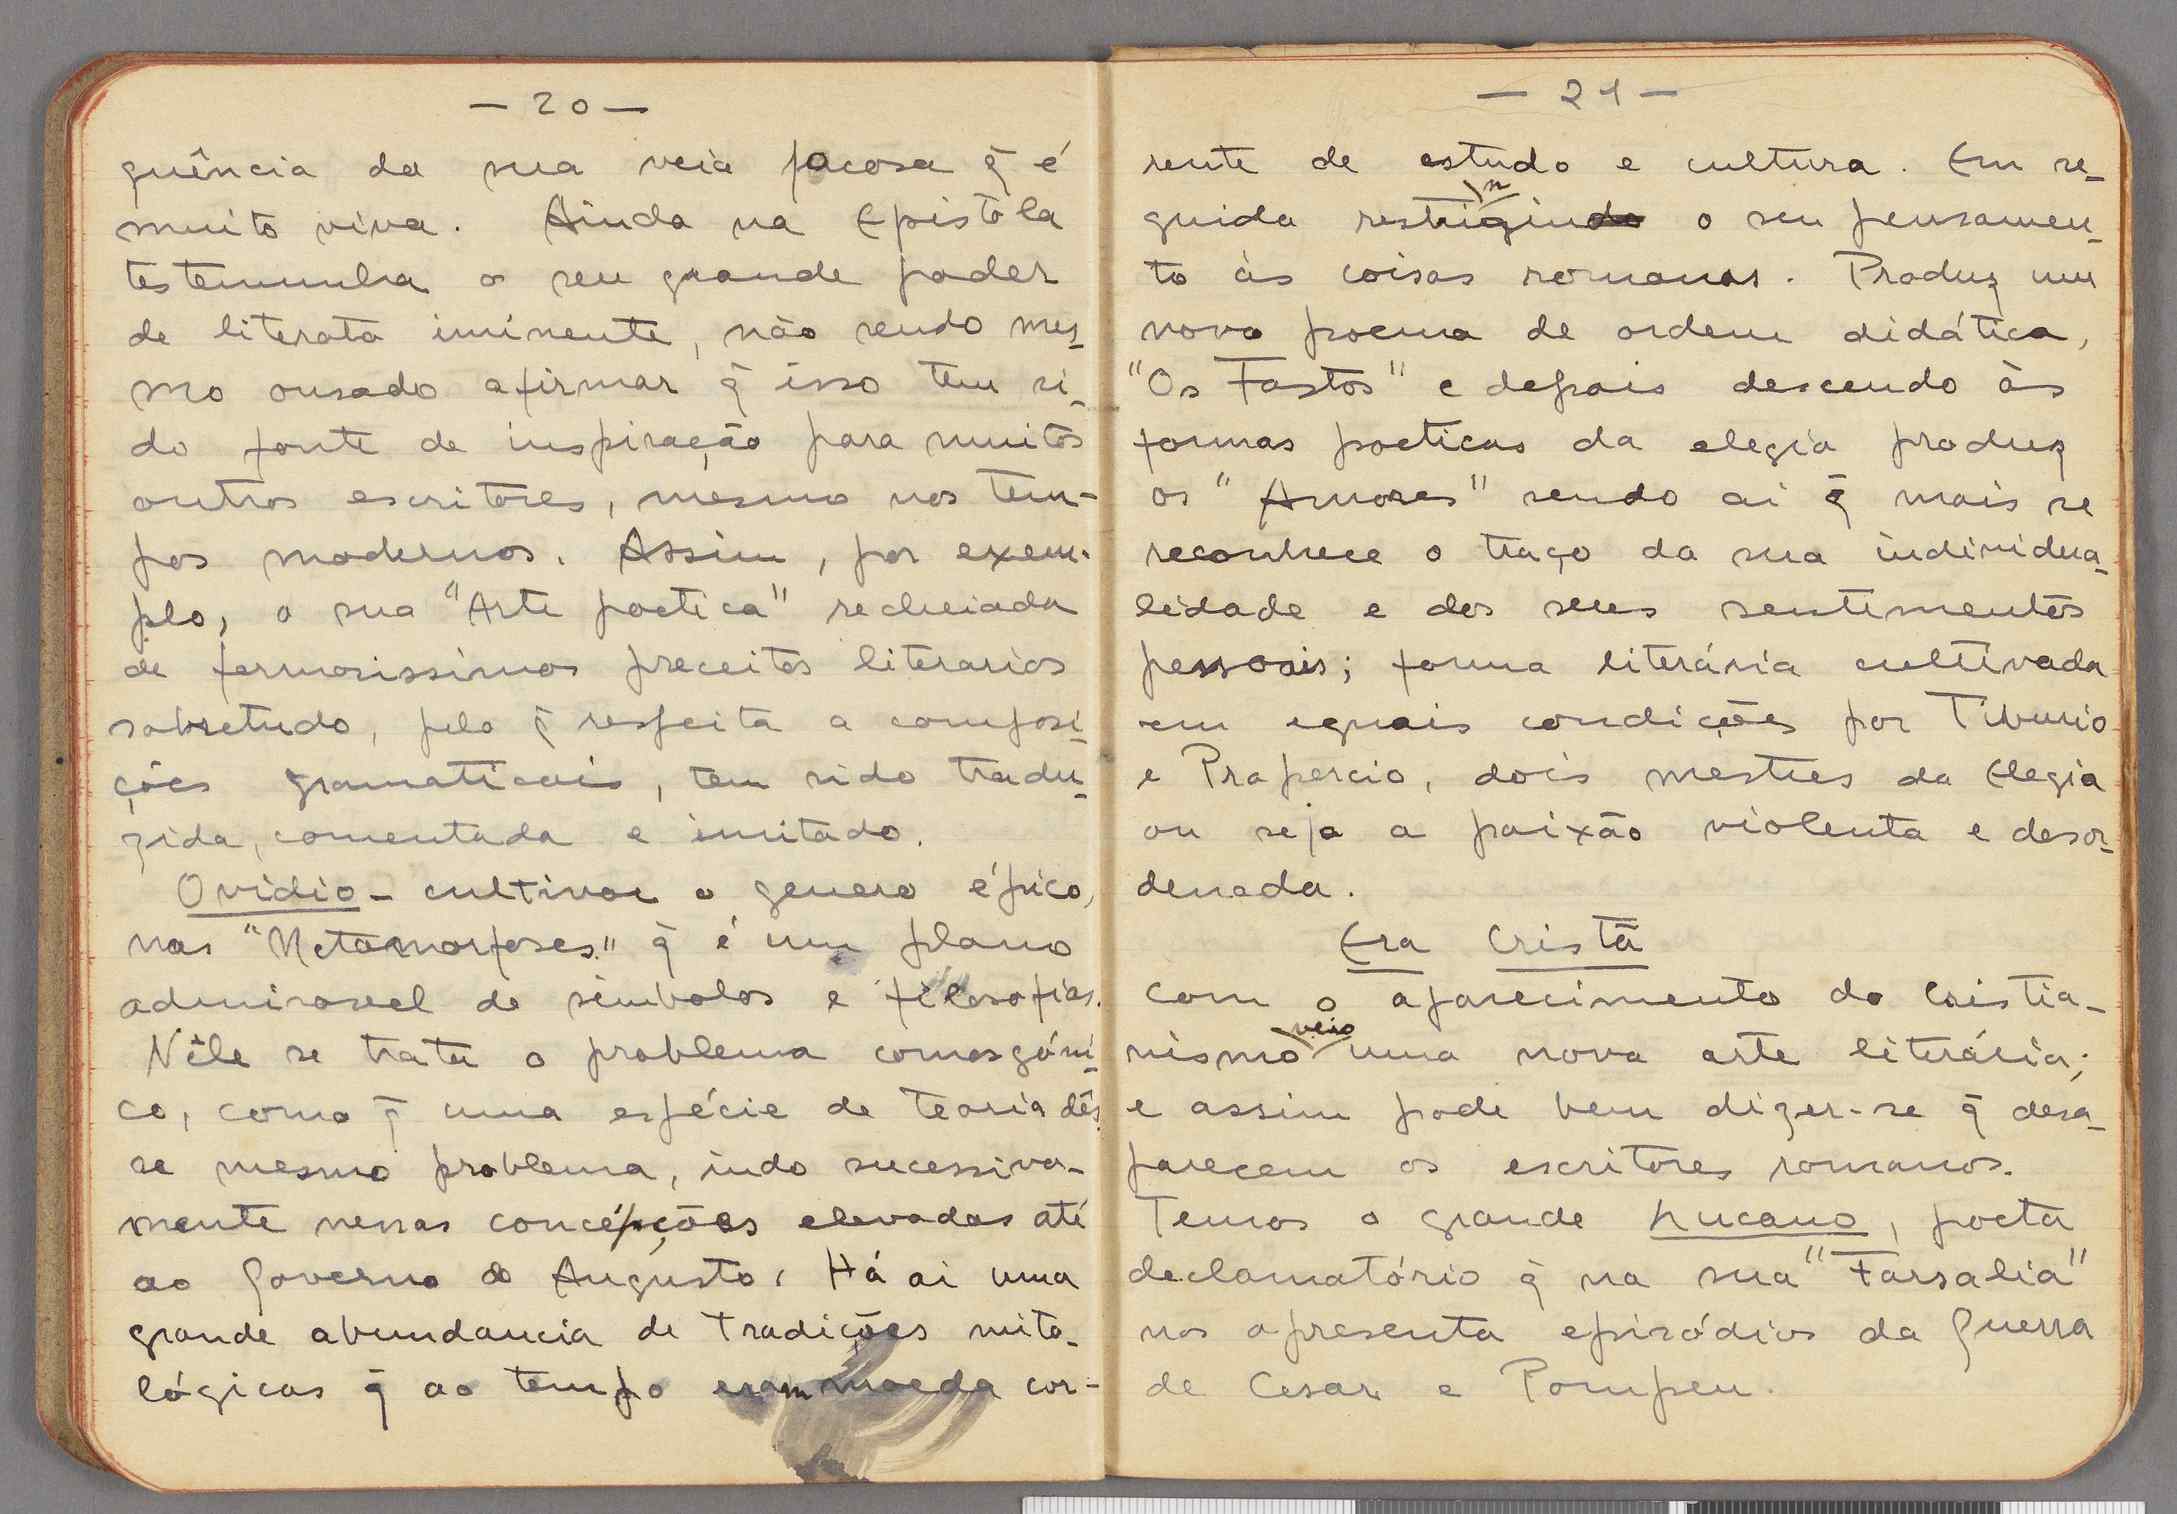 — 20 —
quência da sua veia jocosa q̃ é
muito viva. Ainda na Epistola
testemunha o seu grande poder
de literata iminente, não sendo mes-
mo ousado afirmar q̃ isso tem si-
do fonte de inspiração para muitos
outros escritores, mesmo nos tem-
pos modernos. Assim, por exem-
plo, a sua "Arte poetica" recheiada
de formosissimos preceitos literarios
sobretudo, pelo q̃ respeita a composi-
ções gramaticais, tem sido tradu-
zida, comentada e imitado.
Ovidio - cultivou o genero épico,
nas "Metamorfoses" q̃ é um plano
admiravel de simbolos e filosofias.
Nêle se trata o problema comosgóni-
co, como q̃ uma espécie de teoria dês-
se mesmo problema, indo sucessiva-
mente nessas concépções elevadas até
ao Governo de Augusto. Há ai uma
grande abundancia de tradições mito-
lógicas q̃ ao tempo eram moeda cor-
— 21 —
rente de estudo e cultura. Em se-
guida restringindo o seu pensamen-
to às coisas romanas. Produz um
novo poema de ordem didática,
"Os Fastos" e depois descendo às
formas poeticas da elegia produz
os "Amores" sendo ai q̃ mais se
reconhece o traço da sua individua-
lidade e dos seus sentimentos
pessoais; forma literária cultivada
em eguais condições por Tiburio
e Propercio, dois mestres da Elegia
ou seja a paixão violenta e desor-
denada.
Era Cristã
Com o aparecimento do Cristia-
nismo veio uma nova arte literária;
e assim pode bem dizer-se q̃ desa-
parecem os escritores romanos.
Temos o grande Lucano, poeta
declamatório q̃ na sua "Farsalia"
nos apresenta episódios da Guerra
de Cesar e Pompeu.